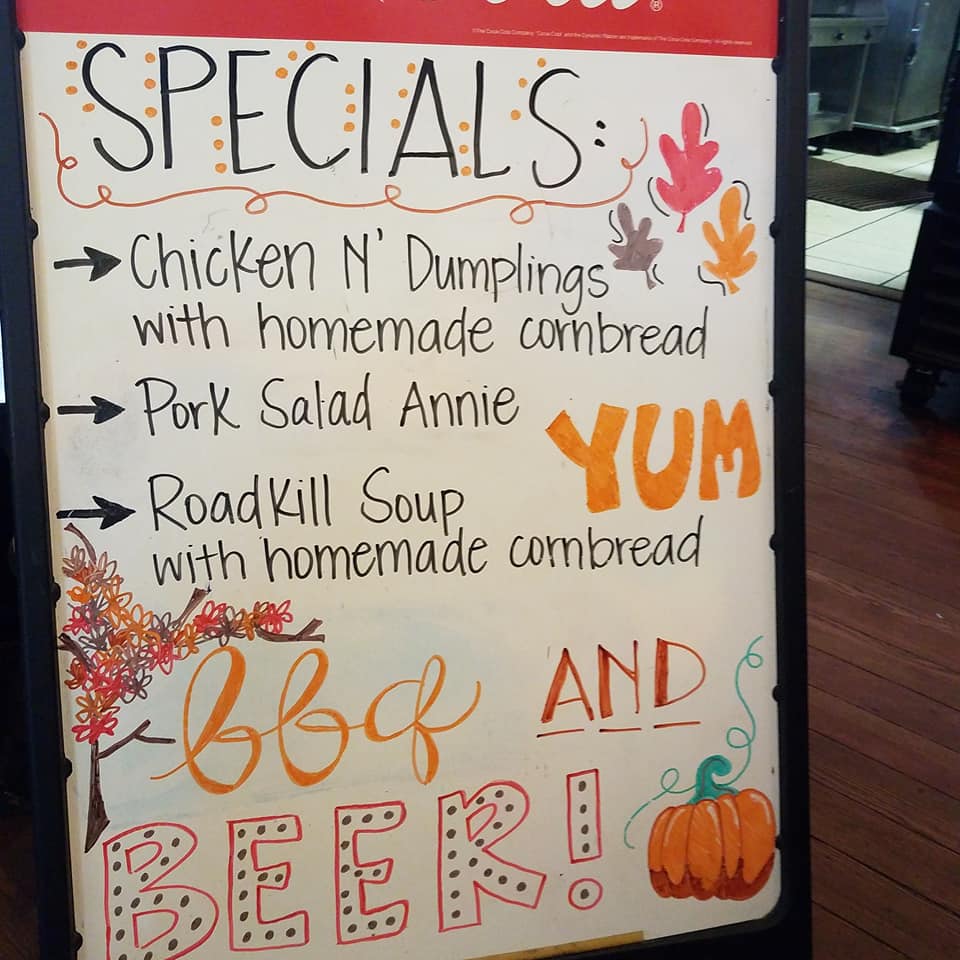 SPECIALS:
→ Chicken N' Dumplings
with homemade cornbread
→ Pork Salad Annie
YUM
→ Roadkill Soup
with homemade cornbread
bbq AND
BEER!